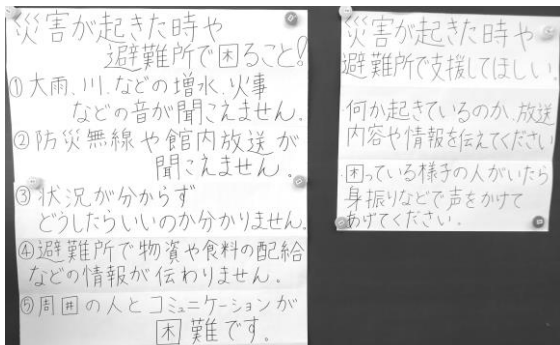 災害が起きた時や
避難所で困ること!
①大雨、川、などの増水、火事
などの音が聞こえません。
②防災無線や館内放送が
聞こえません。
③状況が分からず
どうしたらいいのか分かりません。
④避難所で物資や食料の配給
などの情報が伝わりません。
⑤周囲の人とコミュニケーションが
困難です。
災害が起きた時や
避難所で支援してほしい
何か起きているのか、放送
内容や情報を伝えてください
・困っている様子の人がいたら
身振りなどで声をかけて
あげてください。